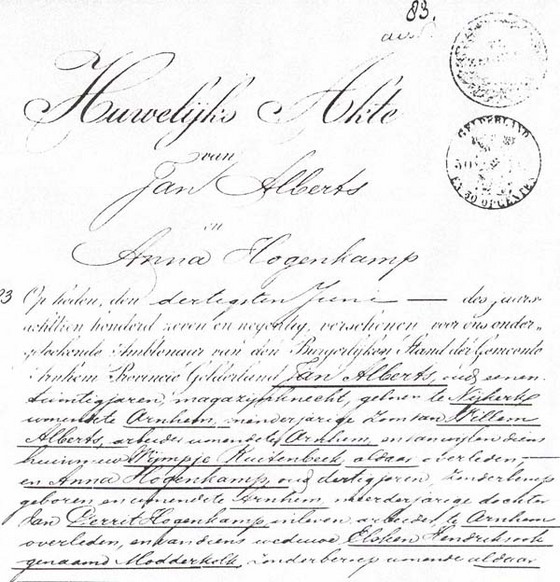 83.
Huwelijks Akte
van
Jan Alberts
en
Anna Hogenkamp
GELDERLAND
EN 30 OPCENTEN
Op heden, den dertigsten Juni — des jaars
achttien honderd zeven en negentig, verschenen voor ons onder-
geteekende Ambtenaar van den Burgerlijken Stand der Gemeente
Arnhem Provincie Gelderland Jan Alberts, oud een en
twintig jaren, magazijnknecht, geboren te Nijkerk
wonende te Arnhem, minderjarige zoon van Willem
Alberts, arbeider wonende te Arnhem, en van wijlen diens
huisvrouw Wijmpje Kuitenbeek, aldaar overleden —
en Anna Hogenkamp, oud dertig jaren, zonder beroep
geboren en wonende te Arnhem, meerderjarige dochter
van Gerrit Hogenkamp in leven arbeider, te Arnhem
overleden, en van diens weduwe Elsken Hendriksen
genaamd Modderkolk, zonder beroep wonende aldaar